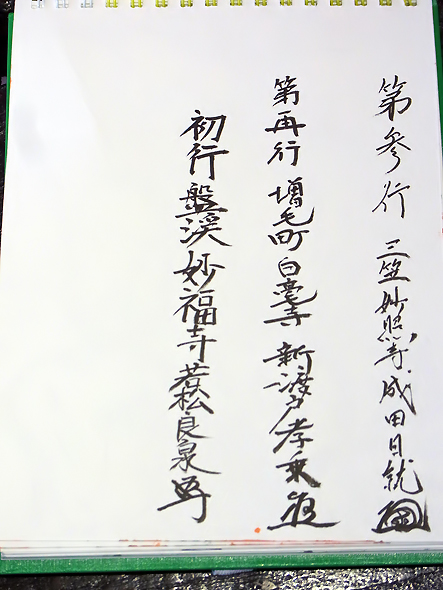 第参行 三笠妙照寺 成田日就
第再行 増毛町白毫寺 新渡戸孝乗
初行 盤渓妙福寺 若松良泉